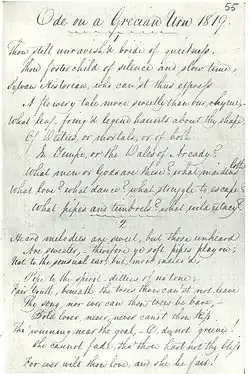 55
Ode on a Grecian Urn 1819.
1
Thou still unravish'd bride of quietness,
Thou foster child of silence and slow time,
Sylvan Historian, who canst thus express
A flowery tale more sweetly than our rhyme,
What leaf-fring'd legend haunts about thy shape
Of Deities, or mortals, or of both
In Tempe, or the Dales of Arcady?
What men or Gods are these? what maidens loth
What love? what dance? what struggle to escape?
What pipes and timbrels? what wild extacy?
2
Heard melodies are sweet, but those unheard
Are sweeter, therefore ye soft pipes play on;
Not to the sensual ear, but, more endear'd,
Pipe to the spirit ditties of no tone;
Fair Youth, beneath the trees thou canst not leave
Thy song, nor ever can those trees be bare,
Bold lover, never, never canst thou kiss,
Tho' winning near the goal, — O, do not grieve!
She cannot fade, tho' thou hast not thy bliss
For ever wilt thou love, and she be fair!